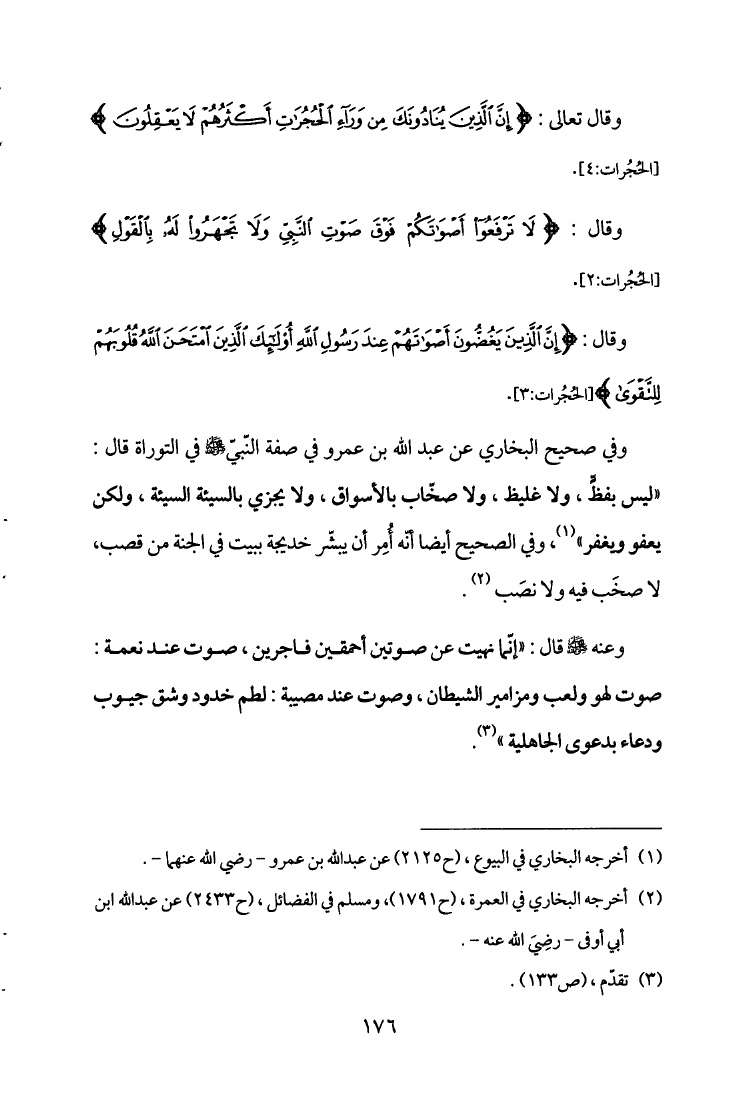 وقال تعالى : ﴿ إِنَّ ٱلَّذِينَ يُنَادُونَكَ مِن وَرَآءِ ٱلْحُجُرَٰتِ أَكْثَرُهُمْ لَا يَعْقِلُونَ ﴾
[الحُجُرات:٤].
وقال : ﴿ لَا تَرْفَعُوٓا۟ أَصْوَٰتَكُمْ فَوْقَ صَوْتِ ٱلنَّبِىِّ وَلَا تَجْهَرُوا۟ لَهُۥ بِٱلْقَوْلِ ﴾
[الحُجُرات:٢].
وقال : ﴿إِنَّ ٱلَّذِينَ يَغُضُّونَ أَصْوَٰتَهُمْ عِندَ رَسُولِ ٱللَّهِ أُو۟لَٰٓئِكَ ٱلَّذِينَ ٱمْتَحَنَ ٱللَّهُ قُلُوبَهُمْ
لِلتَّقْوَىٰ ﴾[الحُجُرات:٣].
وفي صحيح البخاري عن عبد الله بن عمرو في صفة النّبيّ ﷺ في التوراة قال :
«ليس بفظٍّ ، ولا غليظ ، ولا صخّاب بالأسواق ، ولا يجزي بالسيئة السيئة ، ولكن
يعفو ويغفر»(١)، وفي الصحيح أيضا أنّه أُمِر أن يبشّر خديجة ببيت في الجنة من قصب،
لا صخَب فيه ولا نصَب (٢) .
وعنه ﷺ قال : «إنّما نهيت عن صوتين أحمقين فاجرين ، صوت عند نعمة :
صوت لهو ولعب ومزامير الشيطان ، وصوت عند مصيبة : لطم خدود وشق جيوب
ودعاء بدعوى الجاهلية »(٣).
(١) أخرجه البخاري في البيوع ، (ح٢١٢٥) عن عبدالله بن عمرو - رضي الله عنهما - .
(٢) أخرجه البخاري في العمرة ، (ح١٧٩١)، ومسلم في الفضائل ، (ح٢٤٣٣) عن عبدالله ابن
أبي أوفى - رضِيَ الله عنه - .
(٣) تقدّم ، (ص١٣٣) .
١٧٦